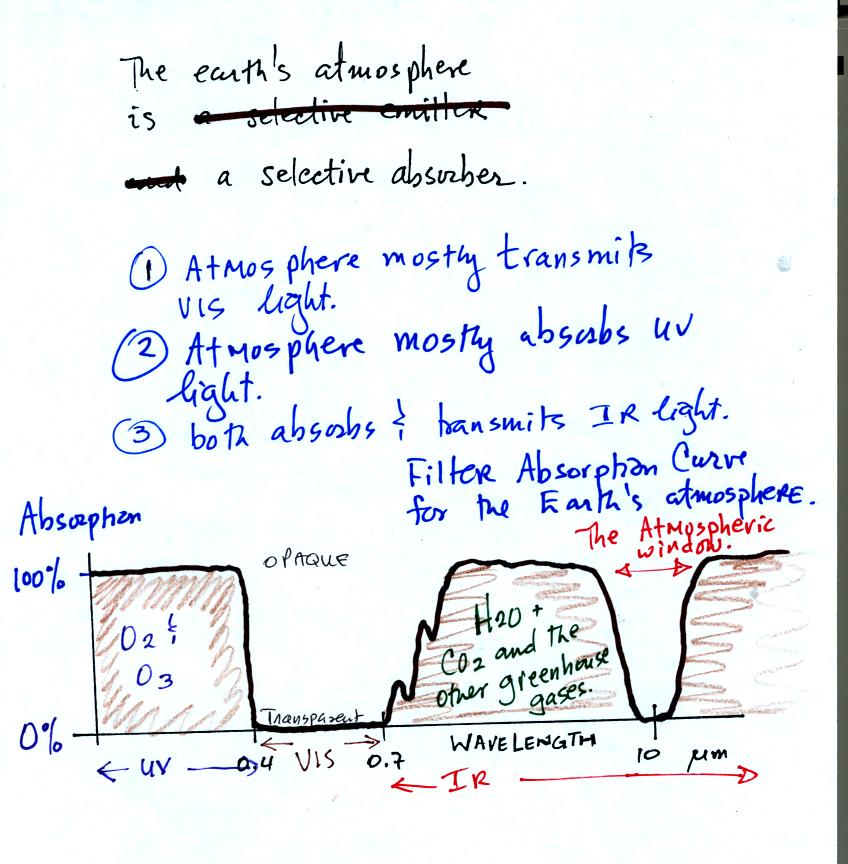 The earth's atmosphere
is a selective emitter
and a selective absorber.
① Atmosphere mostly transmits
VIS light.
② Atmosphere mostly absorbs UV
light.
③ both absorbs & transmits IR light.
Filter Absorption Curve
for the Earth's atmosphere.
Absorption
The Atmospheric
window.
OPAQUE
100%
O2 &
O3
H2O +
CO2 and the
other greenhouse
gases.
Transparent
0%
WAVELENGTH
UV 0.4 VIS 0.7 10 μm
IR